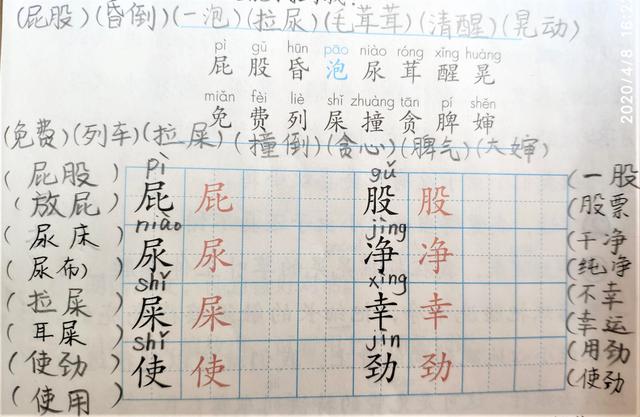 (屁股)(昏倒)(一泡)(拉尿)(毛茸茸)(清醒)(晃动)
pì gǔ hūn pāo niào róng xǐng huàng
屁 股 昏 泡 尿 茸 醒 晃
miǎn fèi liè shǐ zhuàng tān pí shěn
免 费 列 屎 撞 贪 脾 婶
(免费)(列车)(拉屎)(撞倒)(贪心)(脾气)(大婶)
pì gǔ
(屁股) 屁 屁 股 股 (一股
(放屁) (股票)
niào jìng
(尿床) 尿 尿 净 净 (干净
(尿布) (纯净
shǐ xìng
(拉屎) 屎 屎 幸 幸 (不幸
(耳屎) (幸运
shǐ jìn
(使劲) 使 使 劲 劲 (用劲
(使用) (使劲
2020/4/8 16:2